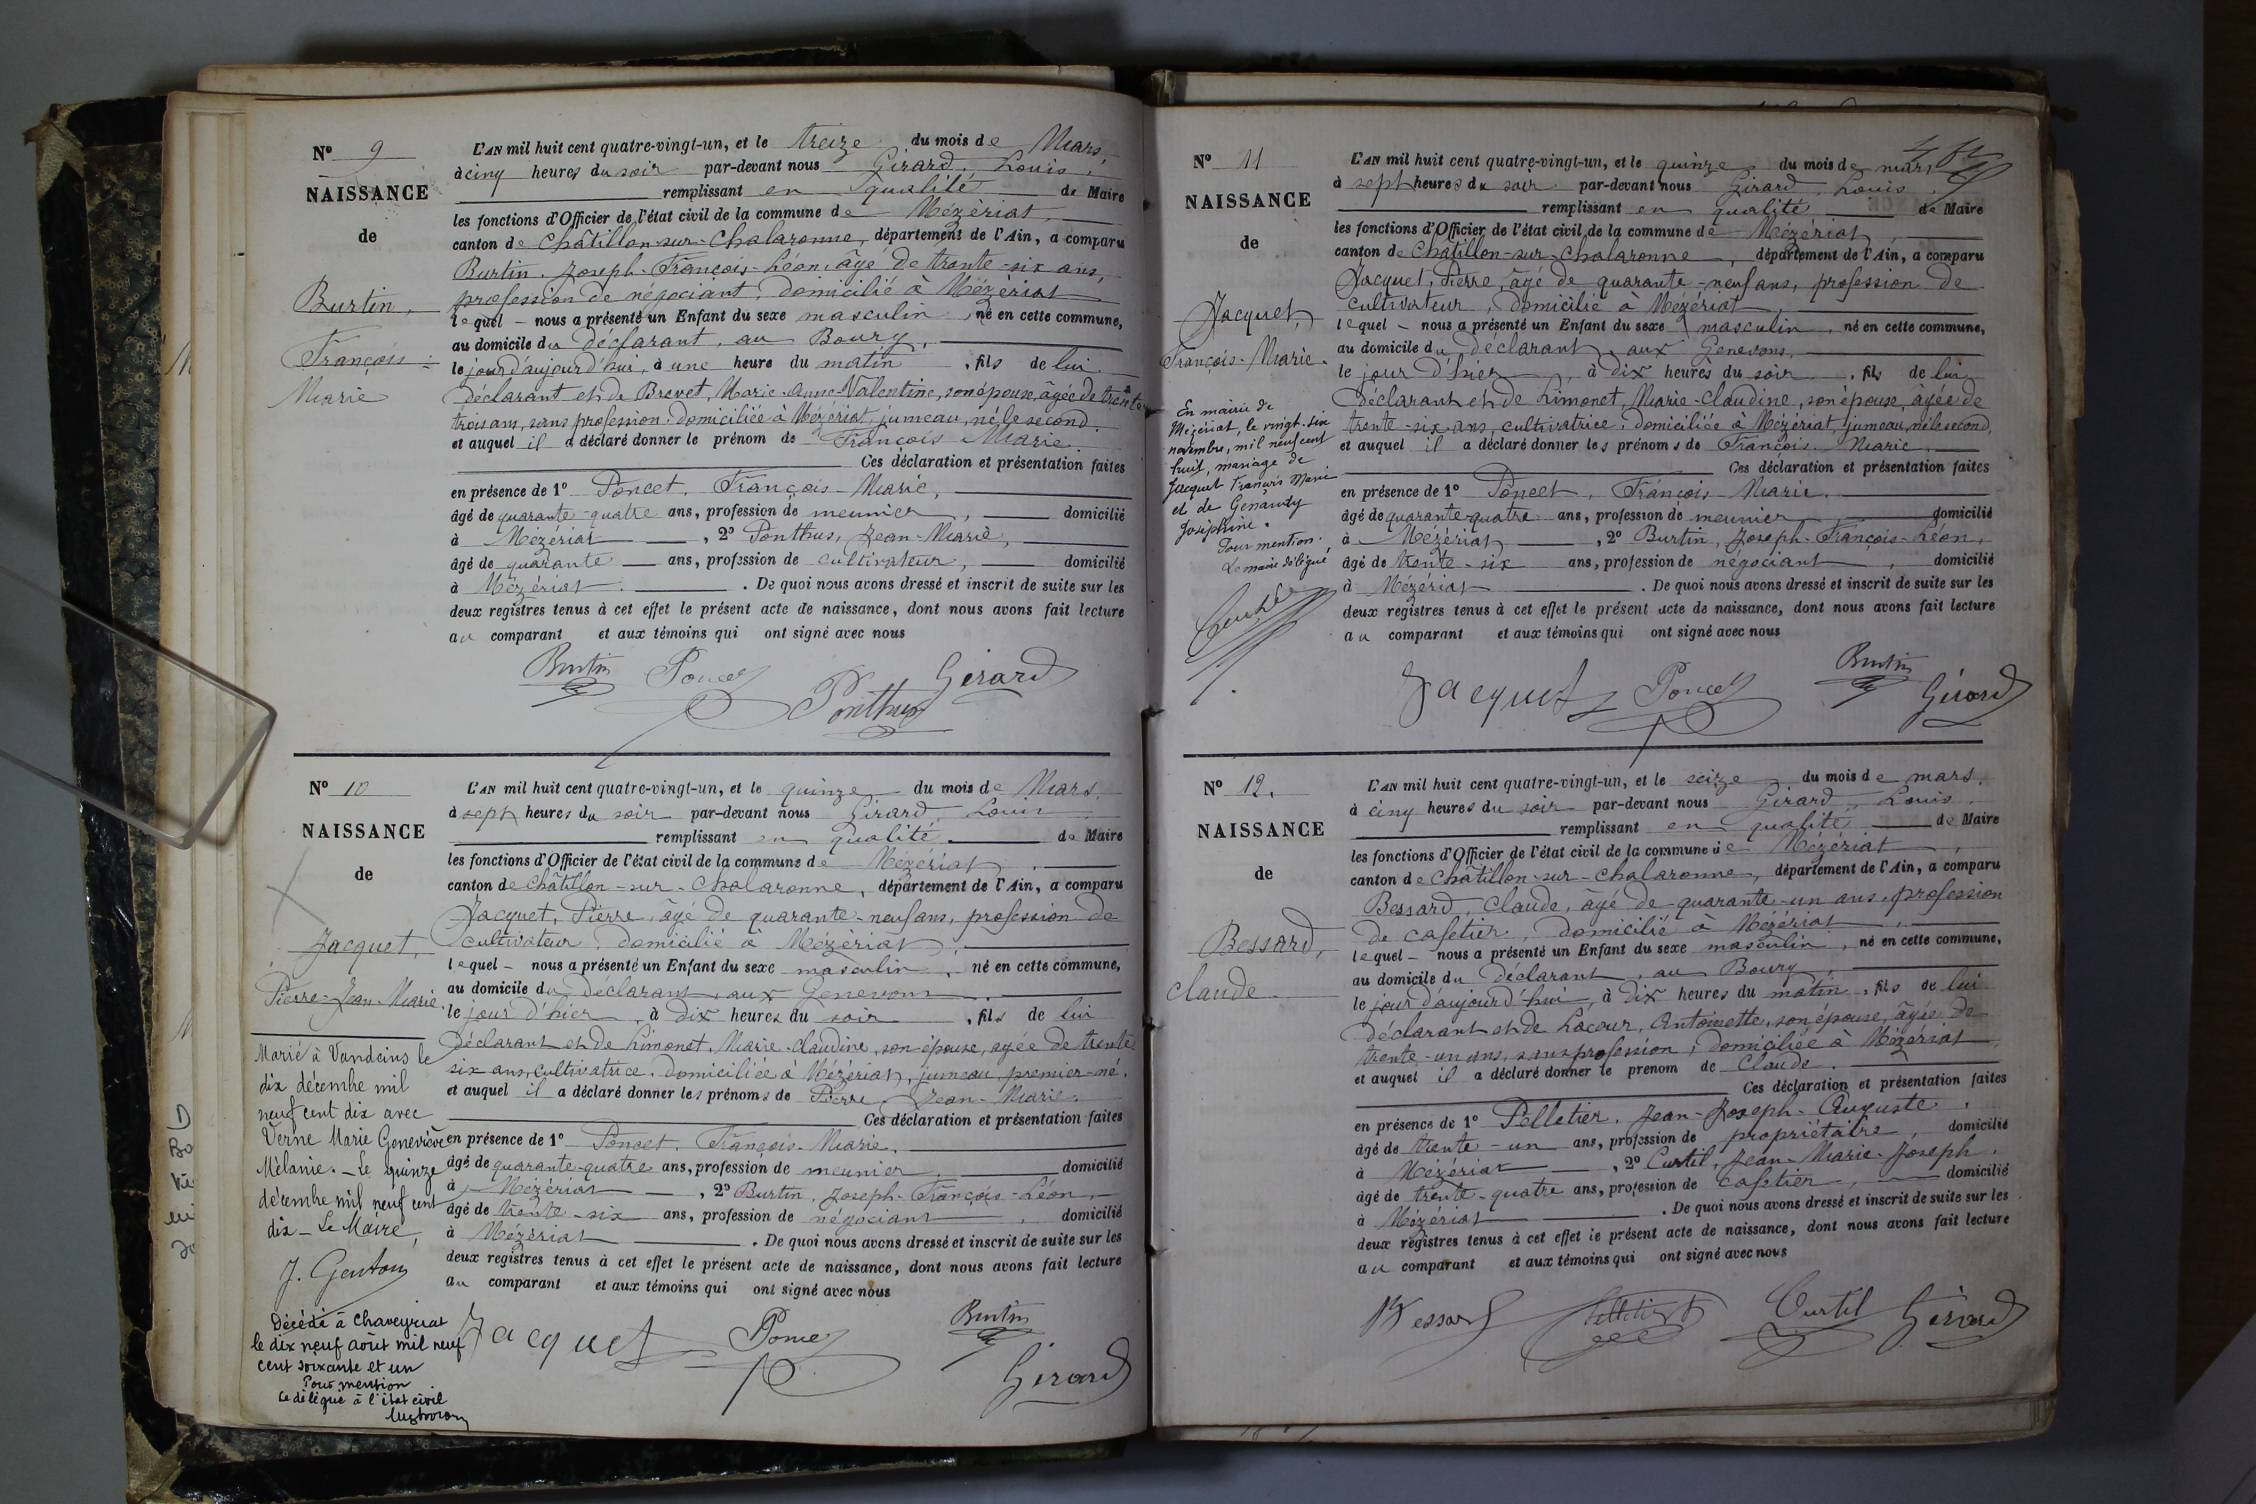 N° 9
NAISSANCE
de
Burtin,
François-
Marie
L'AN mil huit cent quatre-vingt-un, et le treize du mois de Mars,
à cinq heures du soir par-devant nous Girard, Louis,
remplissant en qualité de Maire
les fonctions d'Officier de l'état civil de la commune de Mézériat,
canton de Châtillon-sur-Chalaronne, département de l'Ain, a comparu
Burtin, Joseph-François-Léon, âgé de trente-six ans,
profession de négociant, domicilié à Mézériat
lequel - nous a présenté un Enfant du sexe masculin, né en cette commune,
au domicile du déclarant, au Bourg,
le jour d'aujourd'hui, à une heure du matin, fils de lui
déclarant et de Brevet, Marie-Anne-Valentine, son épouse, âgée de trente
trois ans, sans profession, domiciliée à Mézériat, jumeau, né le second.
et auquel il a déclaré donner le prénom de François Marie
Ces déclaration et présentation faites
en présence de 1° Poncet, François-Marie,
âgé de quarante-quatre ans, profession de meunier, domicilié
à Mézériat, 2° Ponthus, Jean-Marie,
âgé de quarante ans, profession de cultivateur, domicilié
à Mézériat. De quoi nous avons dressé et inscrit de suite sur les
deux registres tenus à cet effet le présent acte de naissance, dont nous avons fait lecture
au comparant et aux témoins qui ont signé avec nous
Burtin Poncet Ponthus Girard
N° 10
NAISSANCE
de
Jacquet,
Pierre-Jean-Marie.
Marié à Vandeins le
dix décembre mil
neuf cent dix avec
Verne Marie Geneviève
Mélanie. - Le quinze
décembre mil neuf cent
dix - Le Maire,
J. Genton
Décédé à Chaveyriat
le dix neuf août mil neuf
cent soixante et un
Pour mention
Le délégué à l'état civil
L'AN mil huit cent quatre-vingt-un, et le quinze du mois de Mars,
à sept heures du soir par-devant nous Girard, Louis
remplissant en qualité de Maire
les fonctions d'Officier de l'état civil de la commune de Mézériat,
canton de Châtillon-sur-Chalaronne, département de l'Ain, a comparu
Jacquet, Pierre, âgé de quarante-neuf ans, profession de
cultivateur, domicilié à Mézériat,
lequel - nous a présenté un Enfant du sexe masculin, né en cette commune,
au domicile du déclarant, aux Genevons
le jour d'hier, à dix heures du soir, fils de lui
déclarant et de Limonet, Marie-Claudine, son épouse, agée de trente
six ans, cultivatrice, domiciliée à Mézériat, jumeau, premier-né.
et auquel il a déclaré donner les prénoms de Pierre, Jean-Marie.
Ces déclaration et présentation faites
en présence de 1° Poncet, François-Marie,
âgé de quarante-quatre ans, profession de meunier, domicilié
à Mézériat, 2° Burtin, Joseph-François-Léon,
âgé de trente-six ans, profession de négociant, domicilié
à Mézériat. De quoi nous avons dressé et inscrit de suite sur les
deux registres tenus à cet effet le présent acte de naissance, dont nous avons fait lecture
au comparant et aux témoins qui ont signé avec nous
Jacquet Poncet Burtin Girard
N° 11
NAISSANCE
de
Jacquet,
François-Marie.
En mairie de
Mézériat, le vingt-six
novembre, mil neuf cent
huit, mariage de
Jacquet François Marie
et de Genaudy
Joséphine.
Pour mention.
Le maire délégué,
L'AN mil huit cent quatre-vingt-un, et le quinze du mois de mars
à sept heures du soir par-devant nous Girard, Louis,
remplissant en qualité de Maire
les fonctions d'Officier de l'état civil de la commune de Mézériat,
canton de Châtillon-sur-Chalaronne, département de l'Ain, a comparu
Jacquet, Pierre, âgé de quarante-neuf ans, profession de
cultivateur, domicilié à Mézériat
lequel - nous a présenté un Enfant du sexe masculin, né en cette commune,
au domicile du déclarant, aux Genevons,
le jour d'hier, à dix heures du soir, fils de lui
déclarant et de Limonet, Marie-Claudine, son épouse, âgée de
trente-six ans, cultivatrice, domiciliée à Mézériat, jumeau, né le second,
et auquel il a déclaré donner les prénoms de François-Marie.
Ces déclaration et présentation faites
en présence de 1° Poncet, François-Marie.
âgé de quarante-quatre ans, profession de meunier, domicilié
à Mézériat, 2° Burtin, Joseph-François-Léon,
âgé de trente-six ans, profession de négociant, domicilié
à Mézériat. De quoi nous avons dressé et inscrit de suite sur les
deux registres tenus à cet effet le présent acte de naissance, dont nous avons fait lecture
au comparant et aux témoins qui ont signé avec nous
Jacquet Poncet Burtin Girard
N° 12.
NAISSANCE
de
Bessard,
Claude
L'AN mil huit cent quatre-vingt-un, et le seize du mois de mars,
à cinq heures du soir par-devant nous Girard, Louis,
remplissant en qualité de Maire
les fonctions d'Officier de l'état civil de la commune de Mézériat,
canton de Châtillon-sur-Chalaronne, département de l'Ain, a comparu
Bessard, Claude, âgé de quarante-un ans, profession
de cafetier, domicilié à Mézériat,
lequel - nous a présenté un Enfant du sexe masculin, né en cette commune,
au domicile du déclarant, au Bourg
le jour d'aujourd'hui, à dix heures du matin, fils de lui
déclarant et de Lacour, Antoinette, son épouse, âgée de
trente-un ans, sans profession, domiciliée à Mézériat
et auquel il a déclaré donner le prenom de Claude.
Ces déclaration et présentation faites
en présence de 1° Pelletier, Jean-Joseph-Auguste,
âgé de trente-un ans, profession de propriétaire, domicilié
à Mézériat, 2° Curtil, Jean-Marie-Joseph,
âgé de trente-quatre ans, profession de cafetier, domicilié
à Mézériat. De quoi nous avons dressé et inscrit de suite sur les
deux registres tenus à cet effet le présent acte de naissance, dont nous avons fait lecture
au comparant et aux témoins qui ont signé avec nous
Bessard Pelletier Curtil Girard